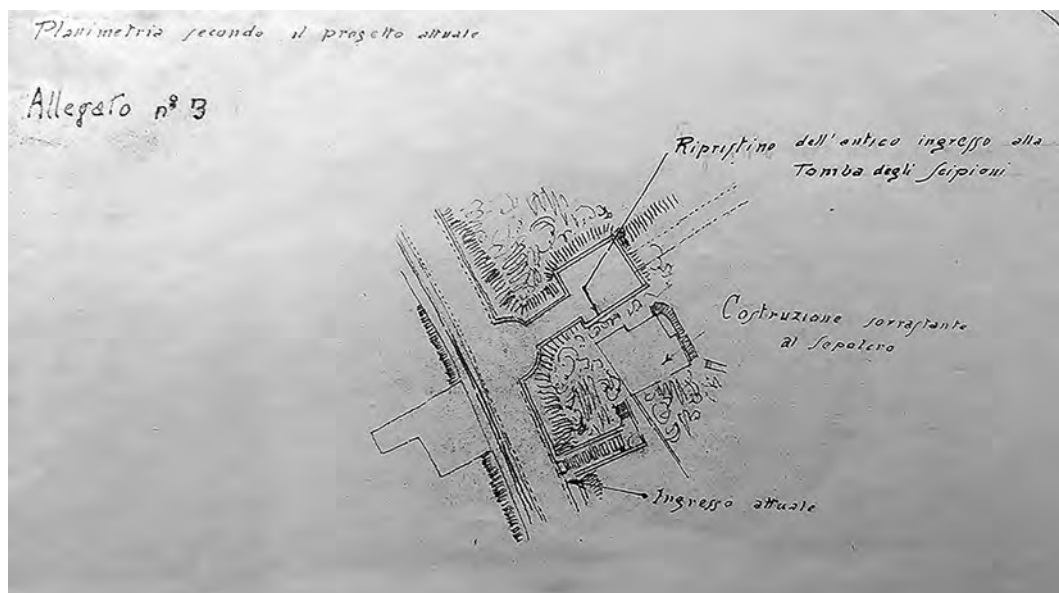 Planimetria secondo il progetto attuale
Allegato nº 3
Ripristino dell'antico ingresso alla
Tomba degli Scipioni
Costruzione sorrastante
al sepolcro
Ingresso attuale